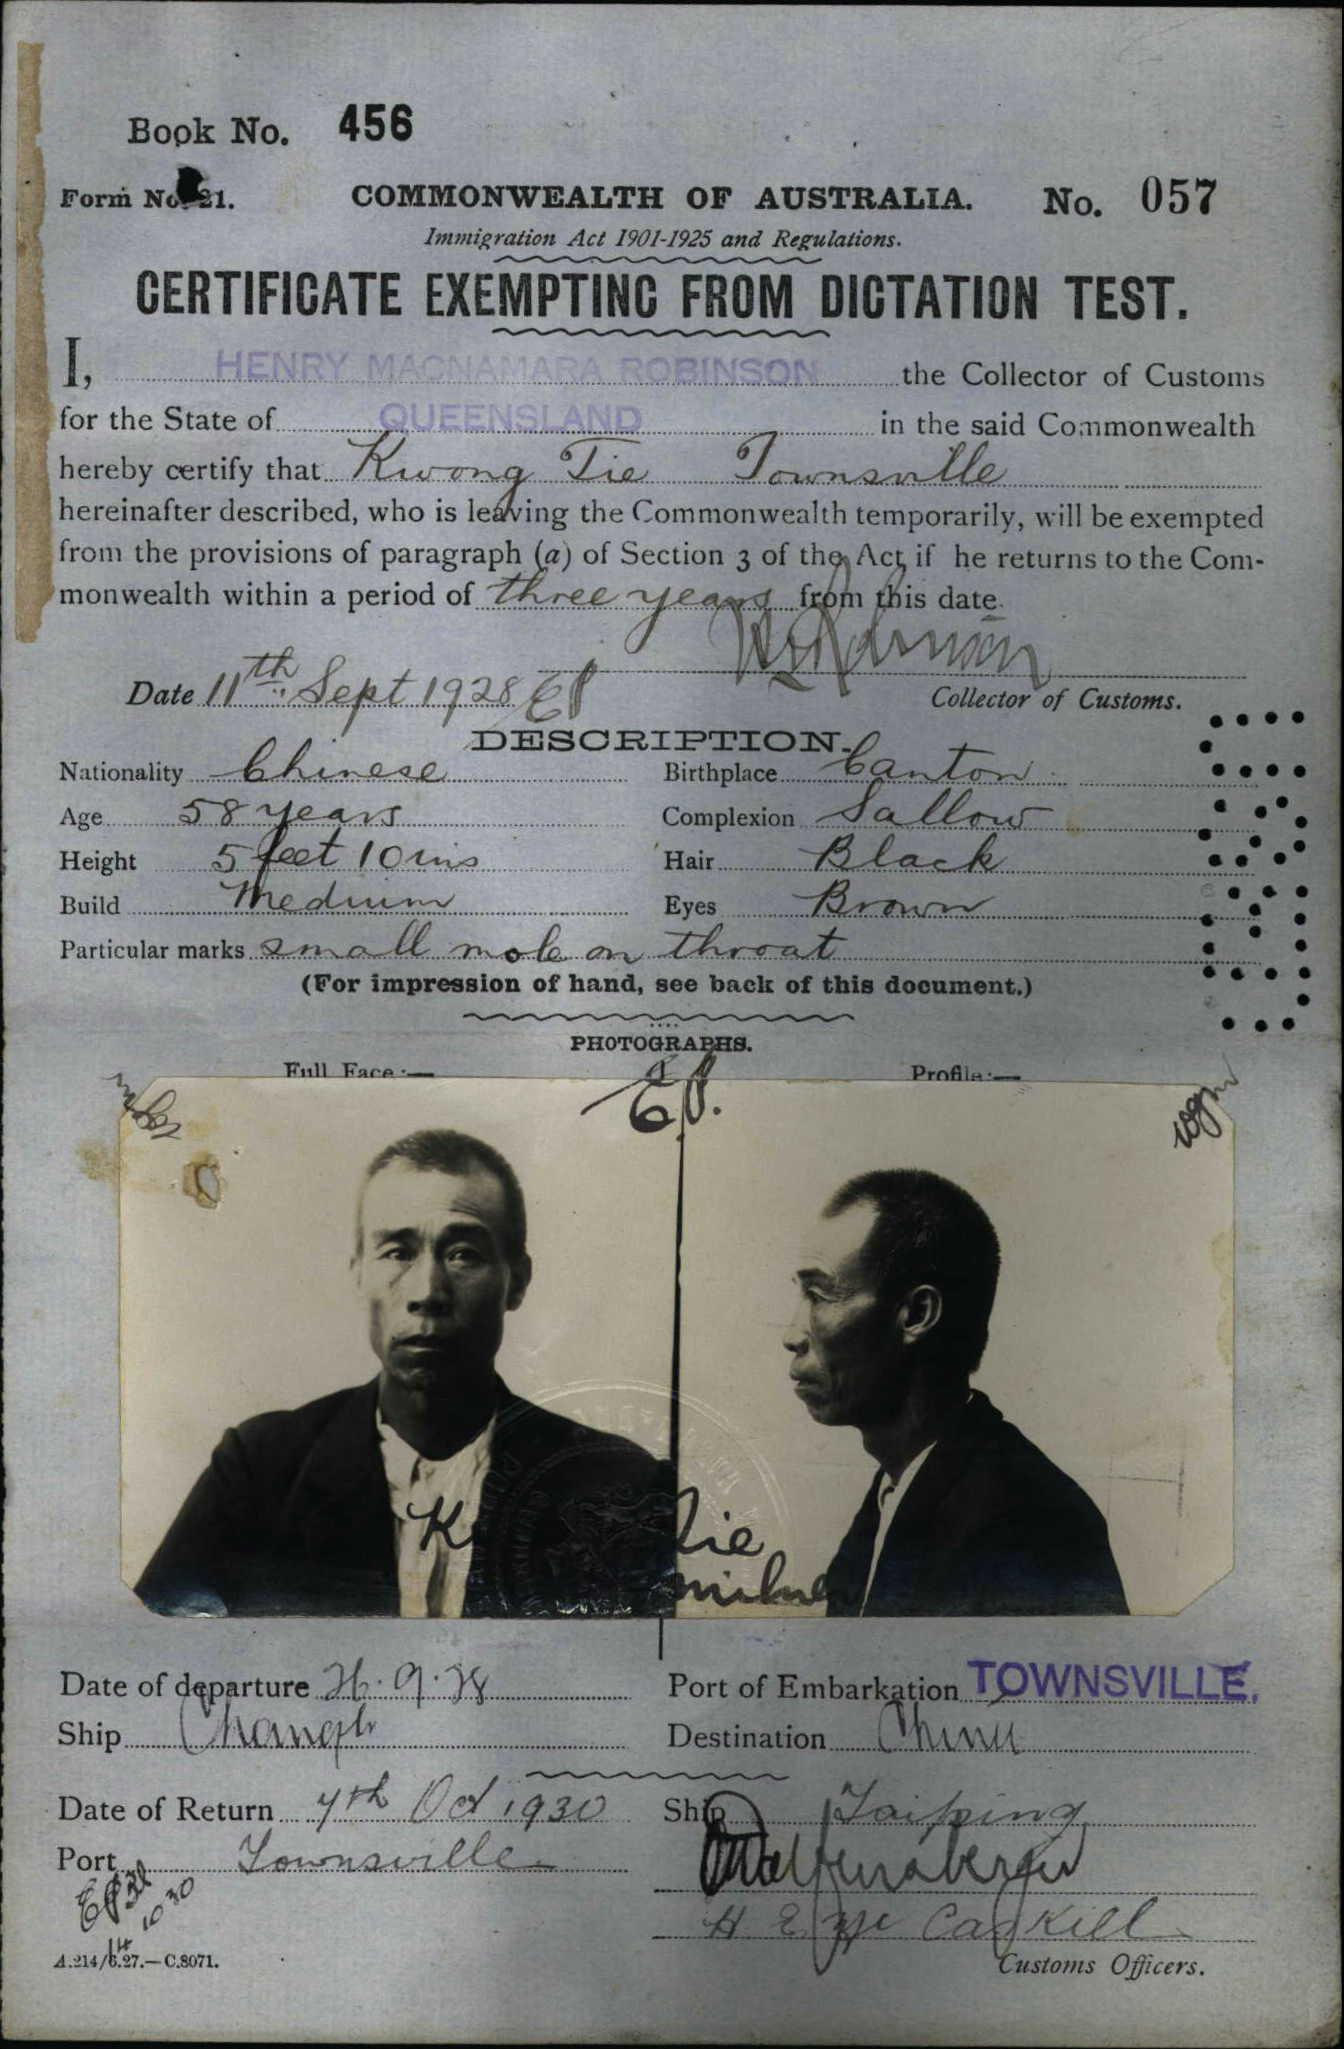 Book No. 456
Form No. 21. COMMONWEALTH OF AUSTRALIA. No. 057
Immigration Act 1901-1925 and Regulations.
CERTIFICATE EXEMPTING FROM DICTATION TEST.
I, HENRY MACNAMARA ROBINSON the Collector of Customs
for the State of QUEENSLAND in the said Commonwealth
hereby certify that Kwong Tie Townsville
hereinafter described, who is leaving the Commonwealth temporarily, will be exempted
from the provisions of paragraph (a) of Section 3 of the Act if he returns to the Com-
monwealth within a period of three years from this date.
Date 11th Sept 1928 Collector of Customs.
DESCRIPTION.
Nationality Chinese Birthplace Canton
Age 58 years Complexion Sallow
Height 5 feet 10 ins Hair Black
Build Medium Eyes Brown
Particular marks small mole on throat
(For impression of hand, see back of this document.)
PHOTOGRAPHS.
Full Face:— Profile:—
K Tie
Date of departure 26.9.28 Port of Embarkation TOWNSVILLE.
Ship Changte Destination China
Date of Return 7th Oct 1930 Ship Taiping
Port Townsville
H E Mc Caskill
A.214/6.27.—C.8071. Customs Officers.